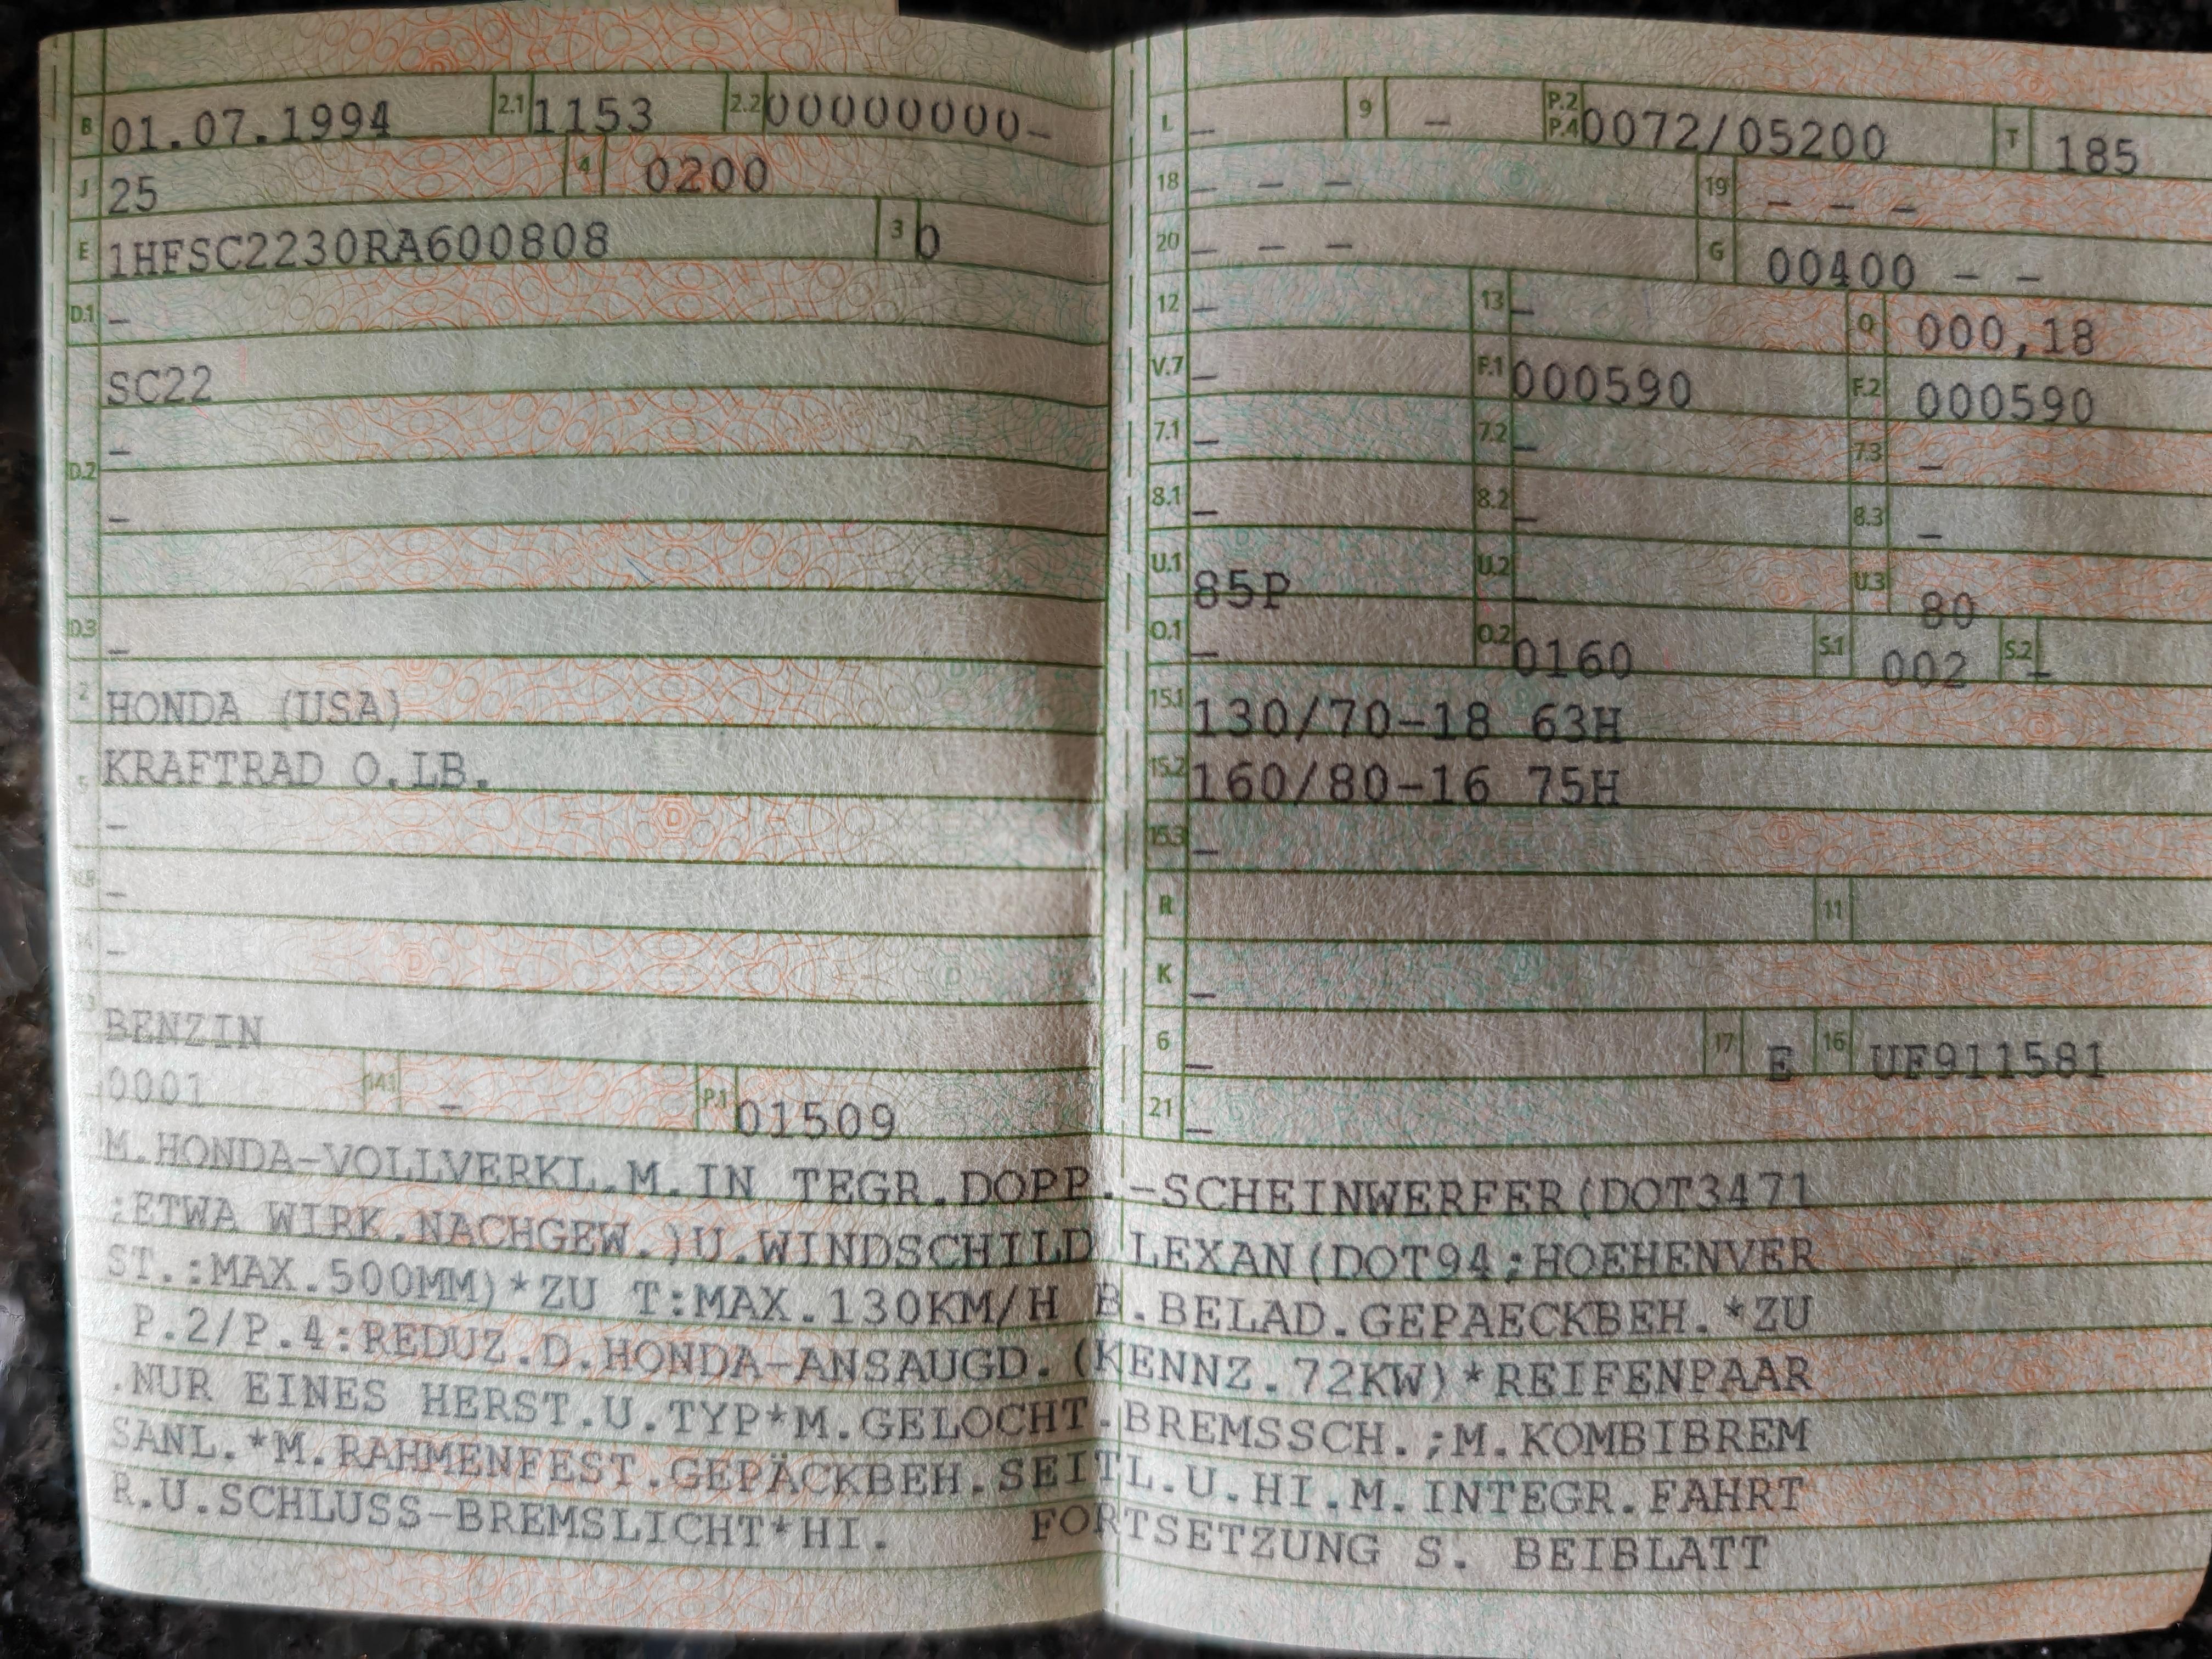 B 01.07.1994 2.1 1153 2.2 00000000-
J 25 4 0200
E 1HFSC2230RA600808 3 b
D.1 -
SC22
-
D.2
-
D.3 -
2 HONDA (USA)
5 KRAFTRAD O.LB.
-
-
-
BENZIN
0001 14.1 - P.1 01509
L - 9 - P.2 P.4 0072/05200 T 185
18 - - - 19 - - -
20 - - - G 00400 - -
12 - 13 - Q 000,18
V.7 - F.1 000590 F.2 000590
7.1 - 7.2 - 7.3 -
8.1 - 8.2 - 8.3 -
U.1 85P U.2 - U.3 80
O.1 - O.2 0160 S.1 002 S.2 -
15.1 130/70-18 63H
15.2 160/80-16 75H
15.3 -
R 11
K -
6 - 17 E 16 UF911581
21 -
M.HONDA-VOLLVERKL.M.IN TEGR.DOPP.-SCHEINWERFER(DOT3471
;ETWA WIRK.NACHGEW.)U.WINDSCHILD LEXAN(DOT94;HOEHENVER
ST.:MAX.500MM)*ZU T:MAX.130KM/H B.BELAD.GEPAECKBEH.*ZU
P.2/P.4:REDUZ.D.HONDA-ANSAUGD.(KENNZ.72KW)*REIFENPAAR
.NUR EINES HERST.U.TYP*M.GELOCHT.BREMSSCH.;M.KOMBIBREM
SANL.*M.RAHMENFEST.GEPÄCKBEH.SEITL.U.HI.M.INTEGR.FAHRT
R.U.SCHLUSS-BREMSLICHT*HI. FORTSETZUNG S. BEIBLATT